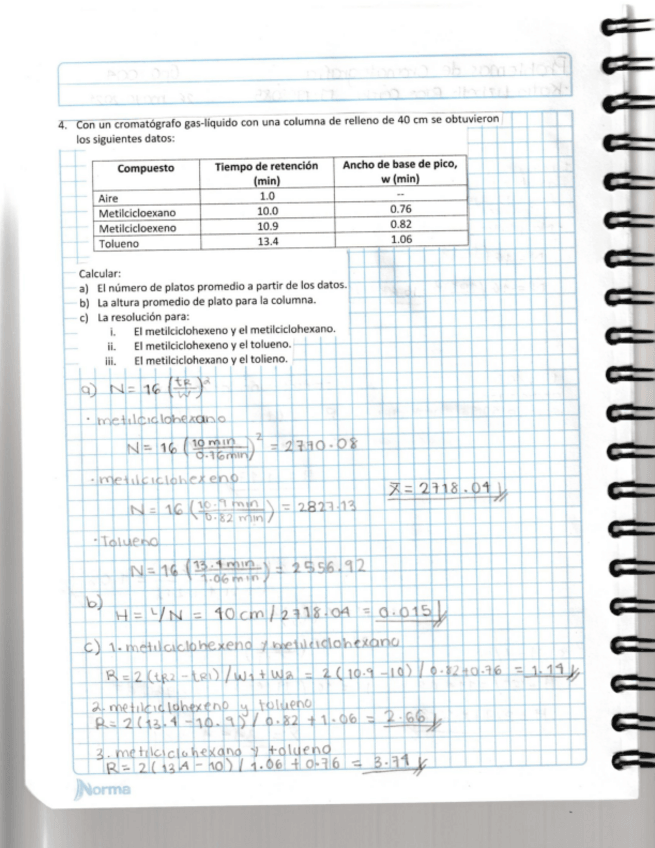 4. Con un cromatógrafo gas-líquido con una columna de relleno de 40 cm se obtuvieron
los siguientes datos:
Compuesto Tiempo de retención (min) Ancho de base de pico, w (min)
Aire 1.0 --
Metilcicloexano 10.0 0.76
Metilcicloexeno 10.9 0.82
Tolueno 13.4 1.06
Calcular:
a) El número de platos promedio a partir de los datos.
b) La altura promedio de plato para la columna.
c) La resolución para:
i. El metilciclohexeno y el metilciclohexano.
ii. El metilciclohexeno y el tolueno.
iii. El metilciclohexano y el tolieno.
a) N = 16 (tR/W)²
· metilciclohexano
N = 16 (10 min/0.76min)² = 2770.08
· metilciclohexeno
x̄ = 2718.04
N = 16 (10.9 min/0.82 min) = 2827.13
· Tolueno
N = 16 (13.4 min/1.06 min) = 2556.92
b)
H = L/N = 40 cm / 2718.04 = 0.015
c) 1. metilciclohexeno y metilciclohexano
R = 2 (tR2 - tR1) / W1 + W2 = 2 (10.9 - 10) / 0.82+0.76 = 1.14
2. metilciclohexeno y tolueno
R = 2 (13.4 - 10.9) / 0.82 + 1.06 = 2.66
3. metilciclohexano y tolueno
R = 2 (13.4 - 10) / 1.06 + 0.76 = 3.74
Norma